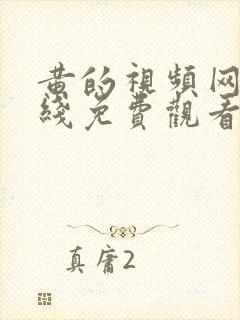 黄的視頻网
綫免費觀看
真庸2